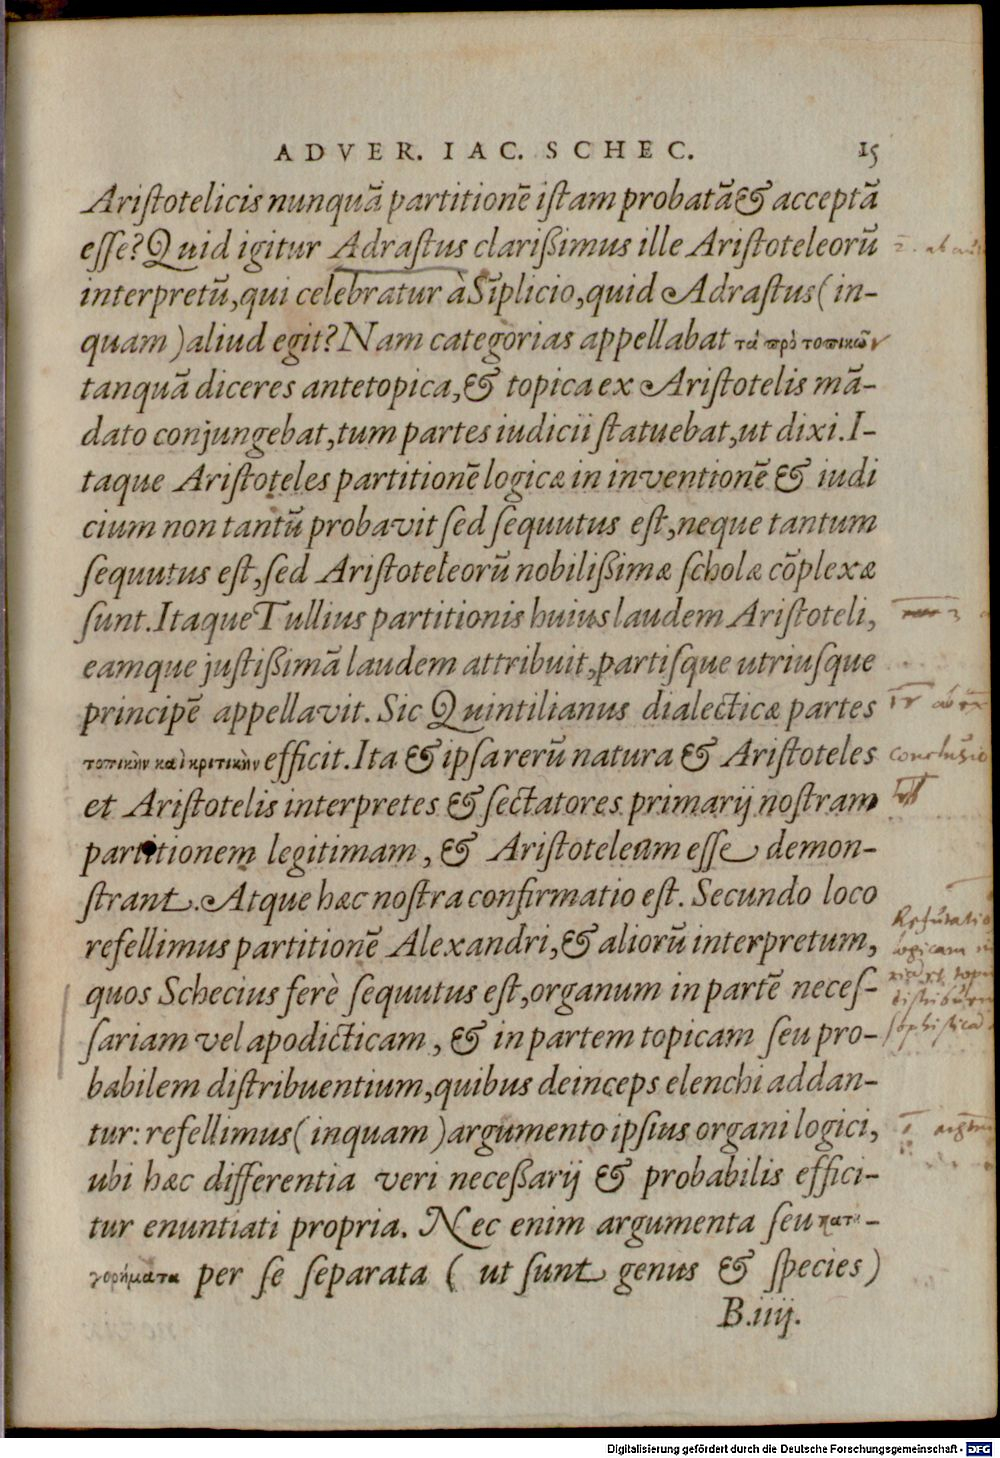 ADVER. IAC. SCHEC. 15
Aristotelicis nunquã partitionẽ istam probatã & acceptã
esse? Quid igitur Adrastus clarißimus ille Aristoteleorũ
interpretũ, qui celebratur à Sĩplicio, quid Adrastus (in-
quam) aliud egit? Nam categorias appellabat τὰ πρὸ τοπικῶν
tanquã diceres antetopica, & topica ex Aristotelis mã-
dato conjungebat, tum partes iudicii statuebat, ut dixi. I-
taque Aristoteles partitionẽ logicæ in inventionẽ & iudi
cium non tantũ probavit sed sequutus est, neque tantum
sequutus est, sed Aristoteleorũ nobilißimæ scholæ cõplexæ
sunt. Itaque Tullius partitionis huius laudem Aristoteli,
eamque justißimã laudem attribuit, partisque utriusque
principẽ appellavit. Sic Quintilianus dialecticæ partes
τοπικὴν καὶ κριτικὴν efficit. Ita & ipsa rerũ natura & Aristoteles
conclusio
et Aristotelis interpretes & sectatores primarij nostram
partitionem legitimam, & Aristoteleam esse demon-
strant. Atque hæc nostra confirmatio est. Secundo loco
refellimus partitionẽ Alexandri, & aliorũ interpretum,
quos Schecius ferè sequutus est, organum in partẽ neces-
sariam vel apodicticam, & in partem topicam seu pro-
babilem distribuentium, quibus deinceps elenchi addan-
tur: refellimus (inquam) argumento ipsius organi logici,
ubi hæc differentia veri neceßarij & probabilis effici-
tur enuntiati propria. Nec enim argumenta seu κατη-
γορήματα per se separata ( ut sunt genus & species)
B.iiij.
Refutatio
logicam
Digitalisierung gefördert durch die Deutsche Forschungsgemeinschaft - DFG